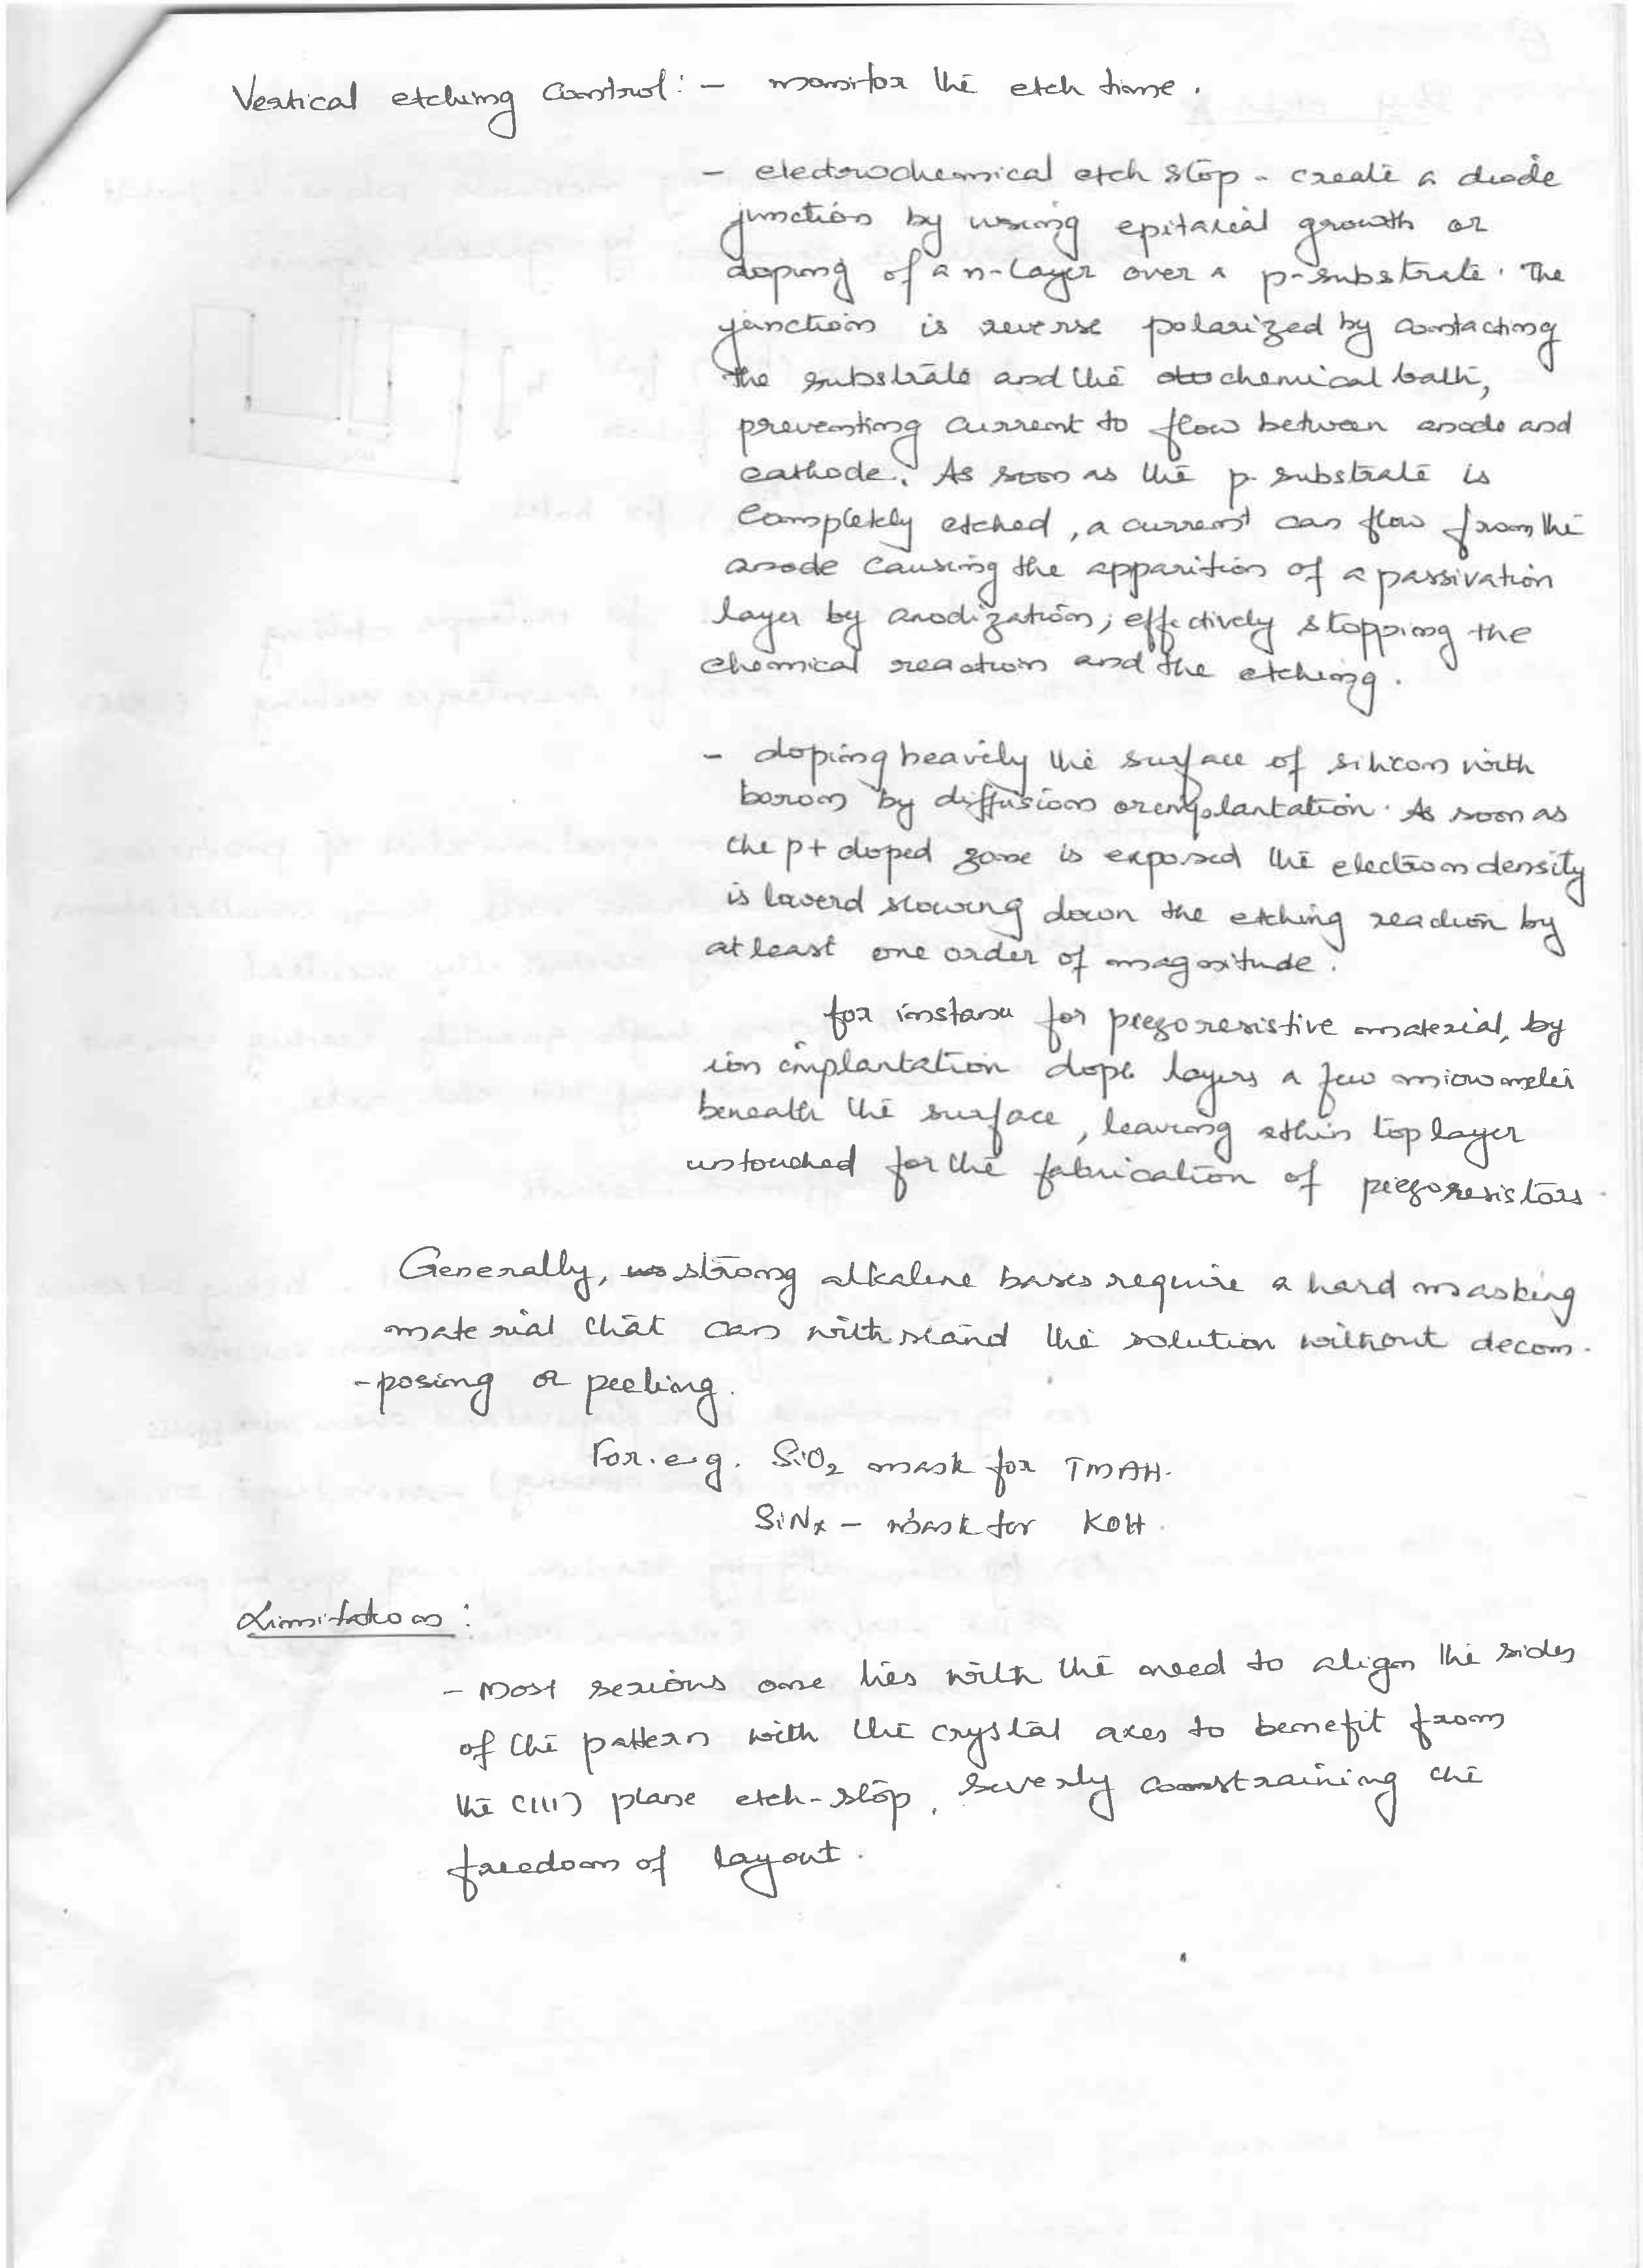 Vertical etching control: - monitor the etch time.
- electrochemical etch stop - create a diode
junction by using epitaxial growth or
doping of a n-layer over a p-substrate. The
junction is reverse polarized by contacting
the substrate and the chemical bath,
preventing current to flow between anode and
cathode. As soon as the p-substrate is
completely etched, a current can flow from the
anode causing the apparition of a passivation
layer by anodization, effectively stopping the
chemical reaction and the etching.
- doping heavily the surface of silicon with
boron by diffusion or implantation. As soon as
the p+ doped zone is exposed the electron density
is lowerd slowing down the etching reaction by
at least one order of magnitude.
for instance for piezoresistive material, by
ion implantation dope layers a few micrometer
beneath the surface, leaving a thin top layer
untouched for the fabrication of piezoresistors.
Generally, strong alkaline bases require a hard masking
material that can withstand the solution without decom-
-posing or peeling.
For.e.g. SiO2 mask for TMAH.
SiNx - mask for KOH.
Limitation:
- Most serious one lies with the need to align the sides
of the pattern with the crystal axes to benefit from
the (111) plane etch-stop, severly constraining the
freedom of layout.